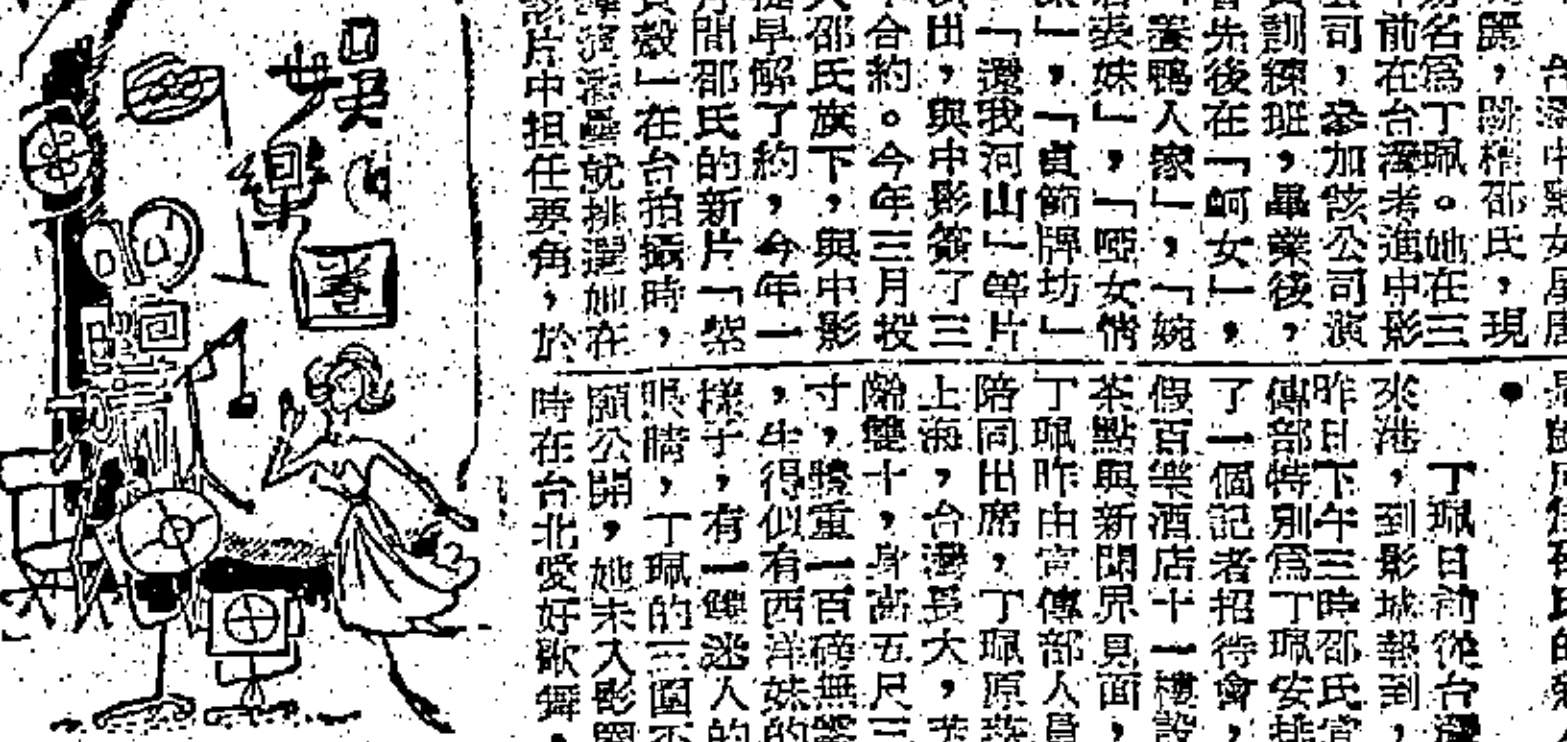 台灣中影女星唐
麗，跳槽邵氏，現
易名爲丁珮。她在三
年前在台灣考進中影
公司，參加該公司演
員訓練班，畢業後，
曾先後在「蚵女」，
「養鴨人家」，「婉
君表妹」，「啞女情
深」，「貞節牌坊」
「還我河山」等片
演出，與中影簽了三
年合約。今年三月投
入邵氏旗下，與中影
提早解了約，今年一
月間邵氏的新片「紫
貝殼」在台拍攝時，
導演潘壘就挑選她在
該片中担任要角，於
●丁珮日前從台灣
來港，到影城報到，
昨日下午三時邵氏宣
傳部特別爲丁珮安排
了一個記者招待會，
假百樂酒店十一樓設
茶點與新聞界見面，
丁珮昨由宣傳部人員
陪同出席，丁珮原籍
上海，台灣長大，芳
齡雙十，身高五尺三
寸，體重一百磅無
，生得似有西洋妹的
樣子，有一雙迷人的
眼睛，丁珮的三圍不
願公開，她未入影圈
時在台北愛好歌舞，
娛樂圈